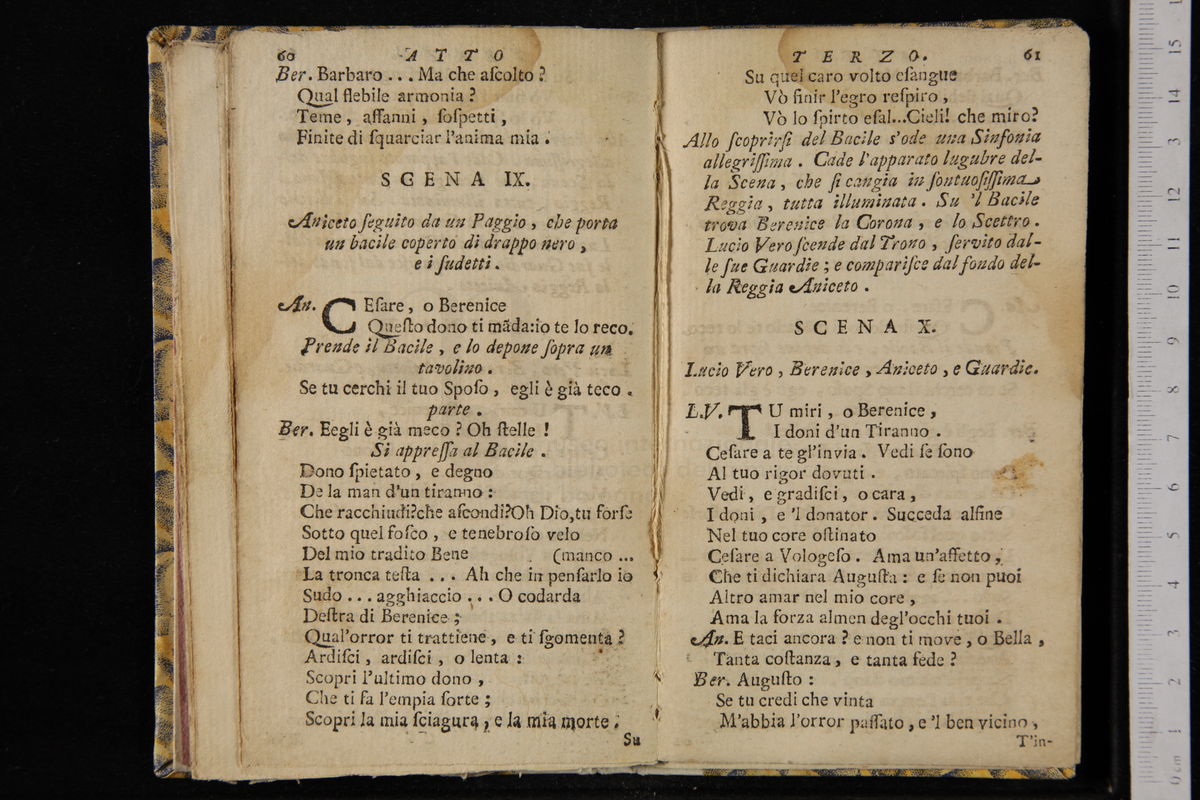 60 ATTO
Ber. Barbaro ... Ma che aſcolto ?
Qual flebile armonia ?
Teme, aſſanni, ſoſpetti,
Finite di ſquarciar l'anima mia.
SCENA IX.
Aniceto ſeguito da un Paggio, che porta
un bacile coperto di drappo nero,
e i ſudetti.
An. CEſare, o Berenice
Queſto dono ti mãda:io te lo reco.
Prende il Bacile, e lo depone ſopra un
tavolino.
Se tu cerchi il tuo Spoſo, egli è già teco.
parte.
Ber. Eegli è già meco ? Oh ſtelle !
Si appreſſa al Bacile.
Dono ſpietato, e degno
De la man d'un tiranno :
Che racchiudi?che aſcondi?Oh Dio,tu forſe
Sotto quel foſco, e tenebroſo velo
Del mio tradito Bene (manco ...
La tronca teſta ... Ah che in penſarlo io
Sudo ... agghiaccio ... O codarda
Deſtra di Berenice ;
Qual'orror ti trattiene, e ti ſgomenta ?
Ardiſci, ardiſci, o lenta :
Scopri l'ultimo dono,
Che ti fa l'empia ſorte ;
Scopri la mia ſciagura, e la mia morte.
Su
TERZO. 61
Su quel caro volto eſangue
Vò finir l'egro reſpiro,
Vò lo ſpirto eſal...Cieli! che miro?
Allo ſcoprirſi del Bacile s'ode una Sinfonia
allegriſſima. Cade l'apparato lugubre del-
la Scena, che ſi cangia in ſontuoſiſſima
Reggia, tutta illuminata. Su 'l Bacile
trova Berenice la Corona, e lo Scettro.
Lucio Vero ſcende dal Trono, ſervito dal-
le ſue Guardie ; e compariſce dal fondo del-
la Reggia Aniceto.
SCENA X.
Lucio Vero, Berenice, Aniceto, e Guardie.
L.V. TU miri, o Berenice,
I doni d'un Tiranno.
Ceſare a te gl'invia. Vedi ſe ſono
Al tuo rigor dovuti.
Vedi, e gradiſci, o cara,
I doni, e 'l donator. Succeda alfine
Nel tuo core oſtinato
Ceſare a Vologeſo. Ama un'affetto,
Che ti dichiara Auguſta : e ſe non puoi
Altro amar nel mio core,
Ama la forza almen degl'occhi tuoi.
An. E taci ancora ? e non ti move, o Bella,
Tanta coſtanza, e tanta fede ?
Ber. Auguſto :
Se tu credi che vinta
M'abbia l'orror paſſato, e 'l ben vicino,
T'in-